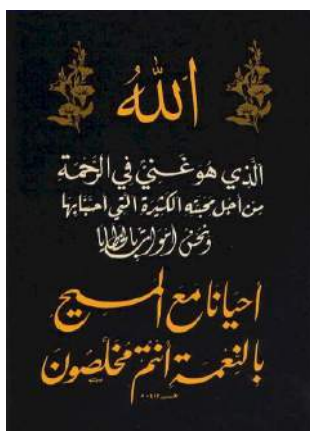 اللهُ
الَّذي هُوَ غَنيٌّ في الرَّحمَة
مِن أجل محبته الكثيرة التي أحبنا بها
ونحنُ أمواتٌ بالخطايا
أحيانا مع المسيح
بالنعمة أنتم مخلَّصون